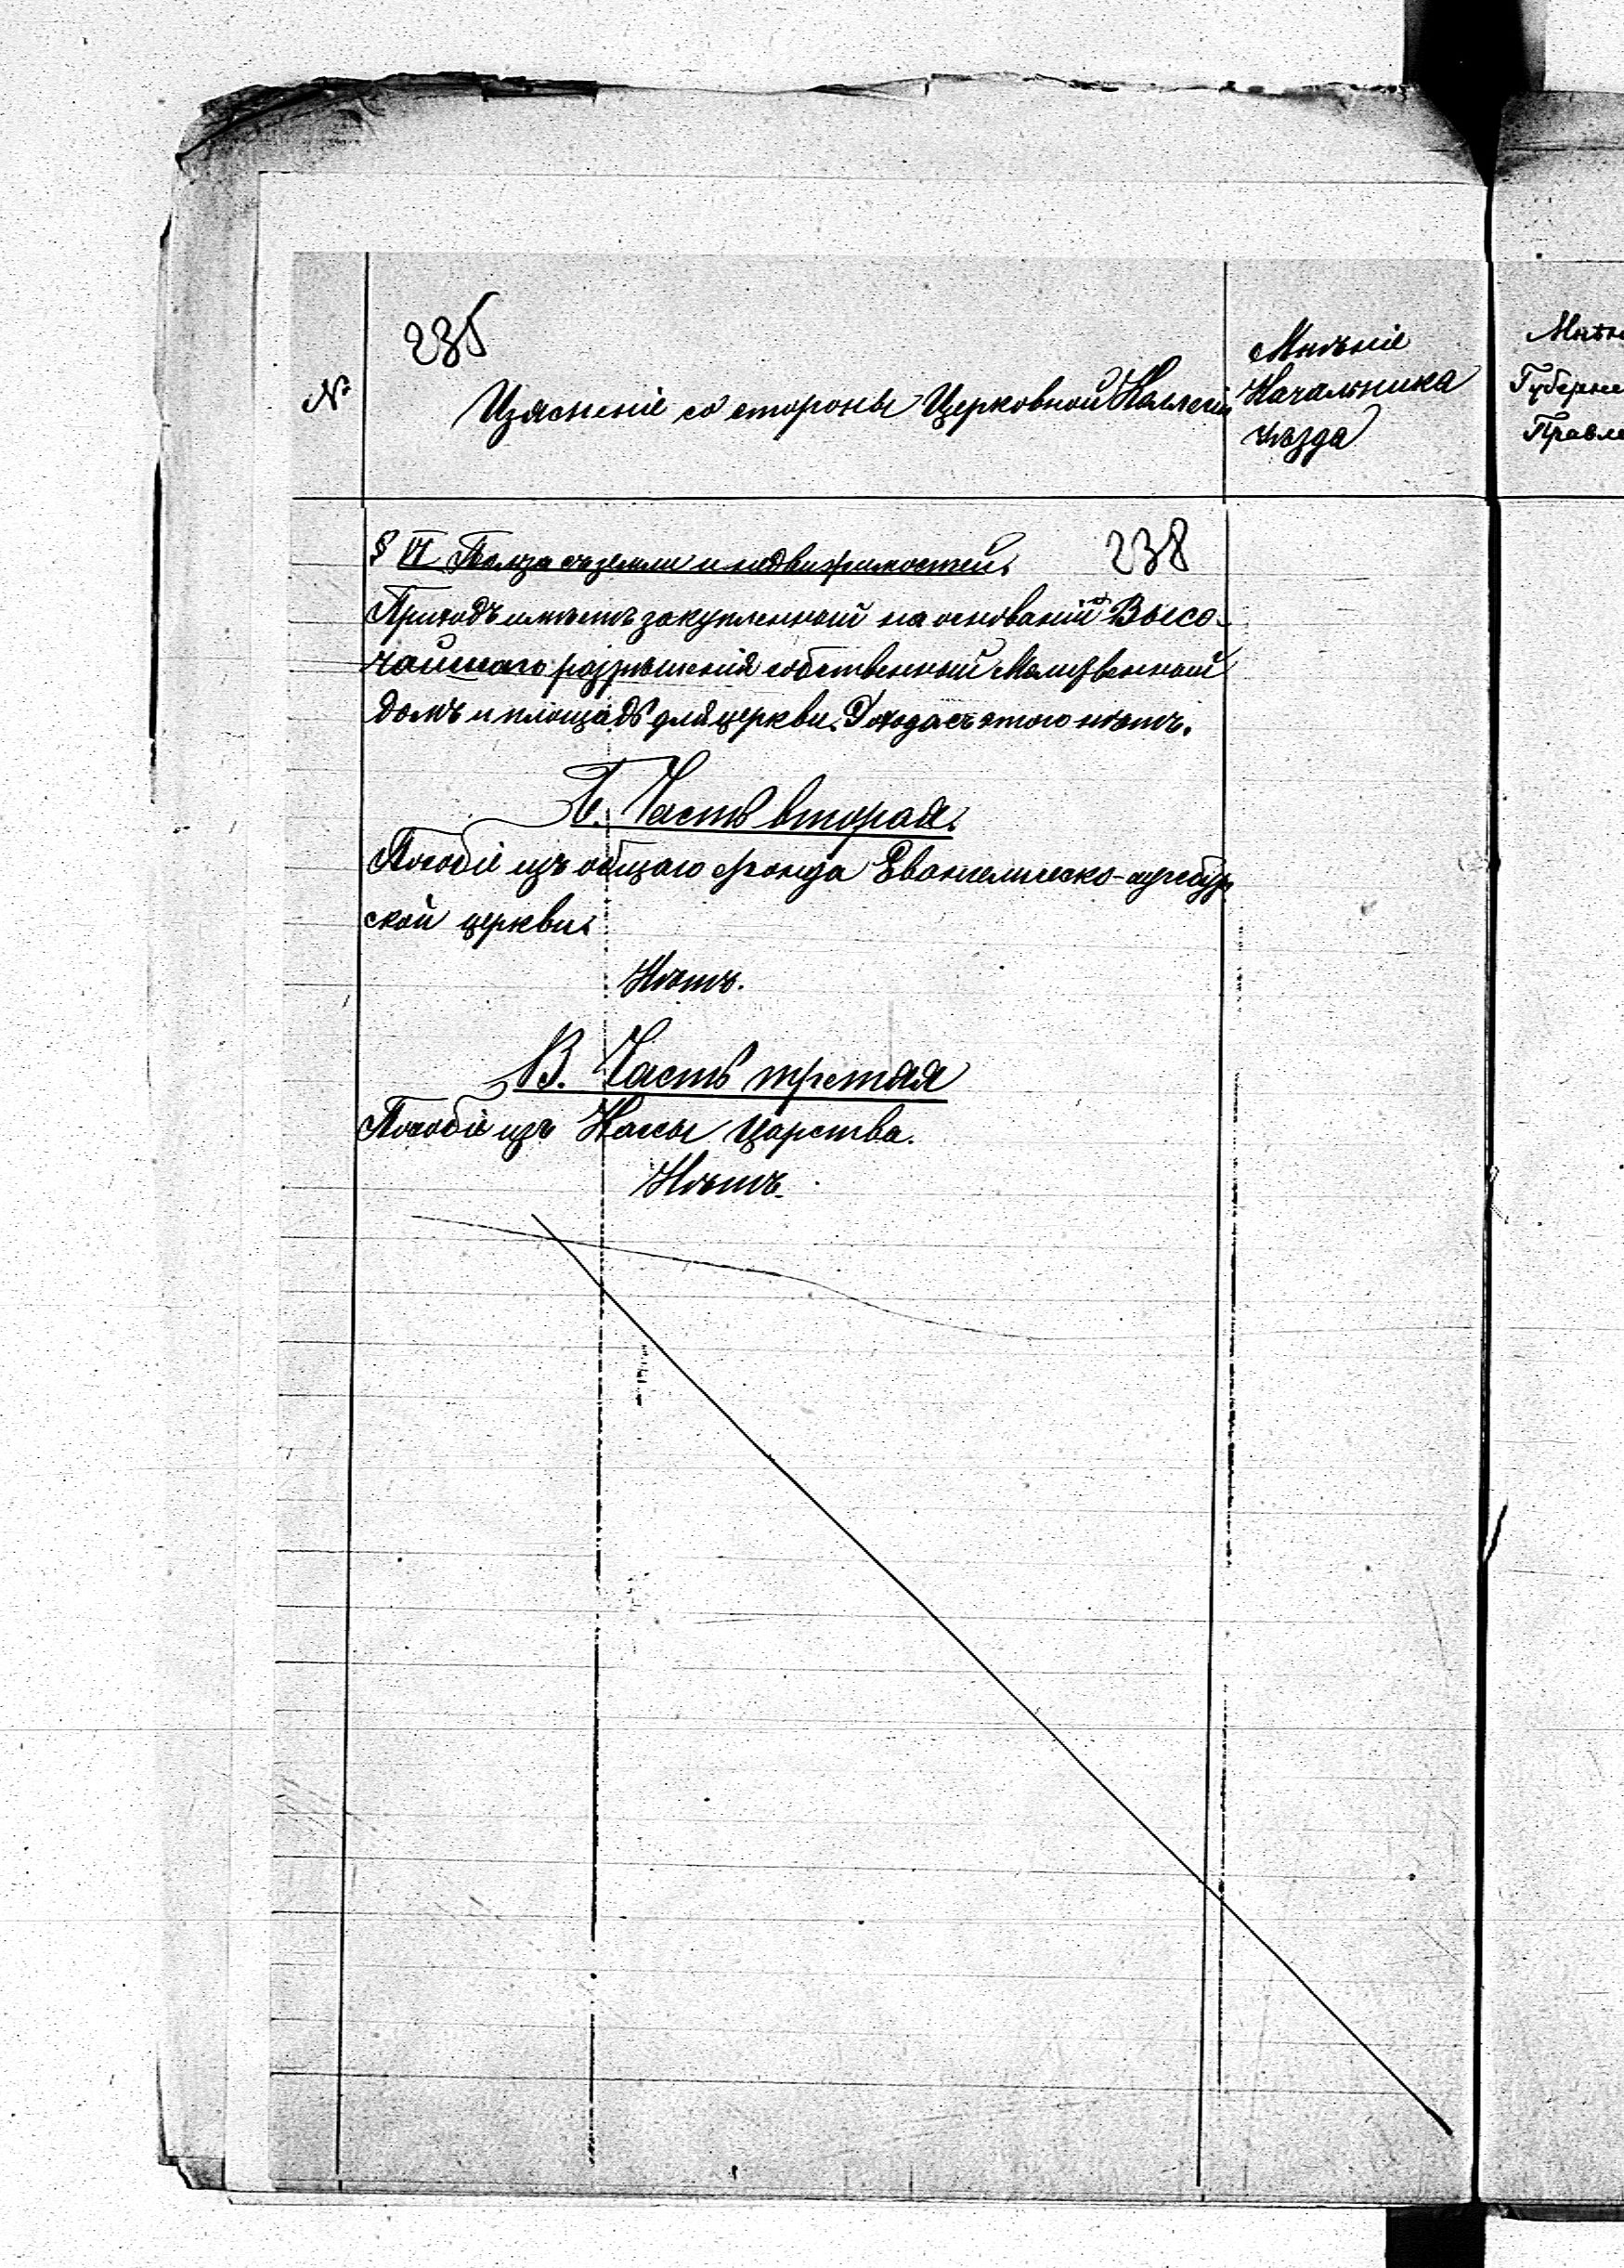 235
№
Изясненіе со стороны Церковной Коллегіи
Мнѣніе
Начальника
уѣзда
Мнѣн
Губерне
Правле
§ VI Польза съ земли и недвижимостей.
238
Приходъ имѣетъ закупленный на основаніи Высо-
чайшаго разрѣшенія собственный Молитвенный
домъ и площадь для церкви. Дохода съ этого нѣтъ.
Б. Часть вторая.
Пособіе изъ общаго фонда Евангелическо-аугсбур
ской церкви.
Нѣтъ.
В. Часть третая
Пособіе изъ Кассы Царства.
Нѣтъ.